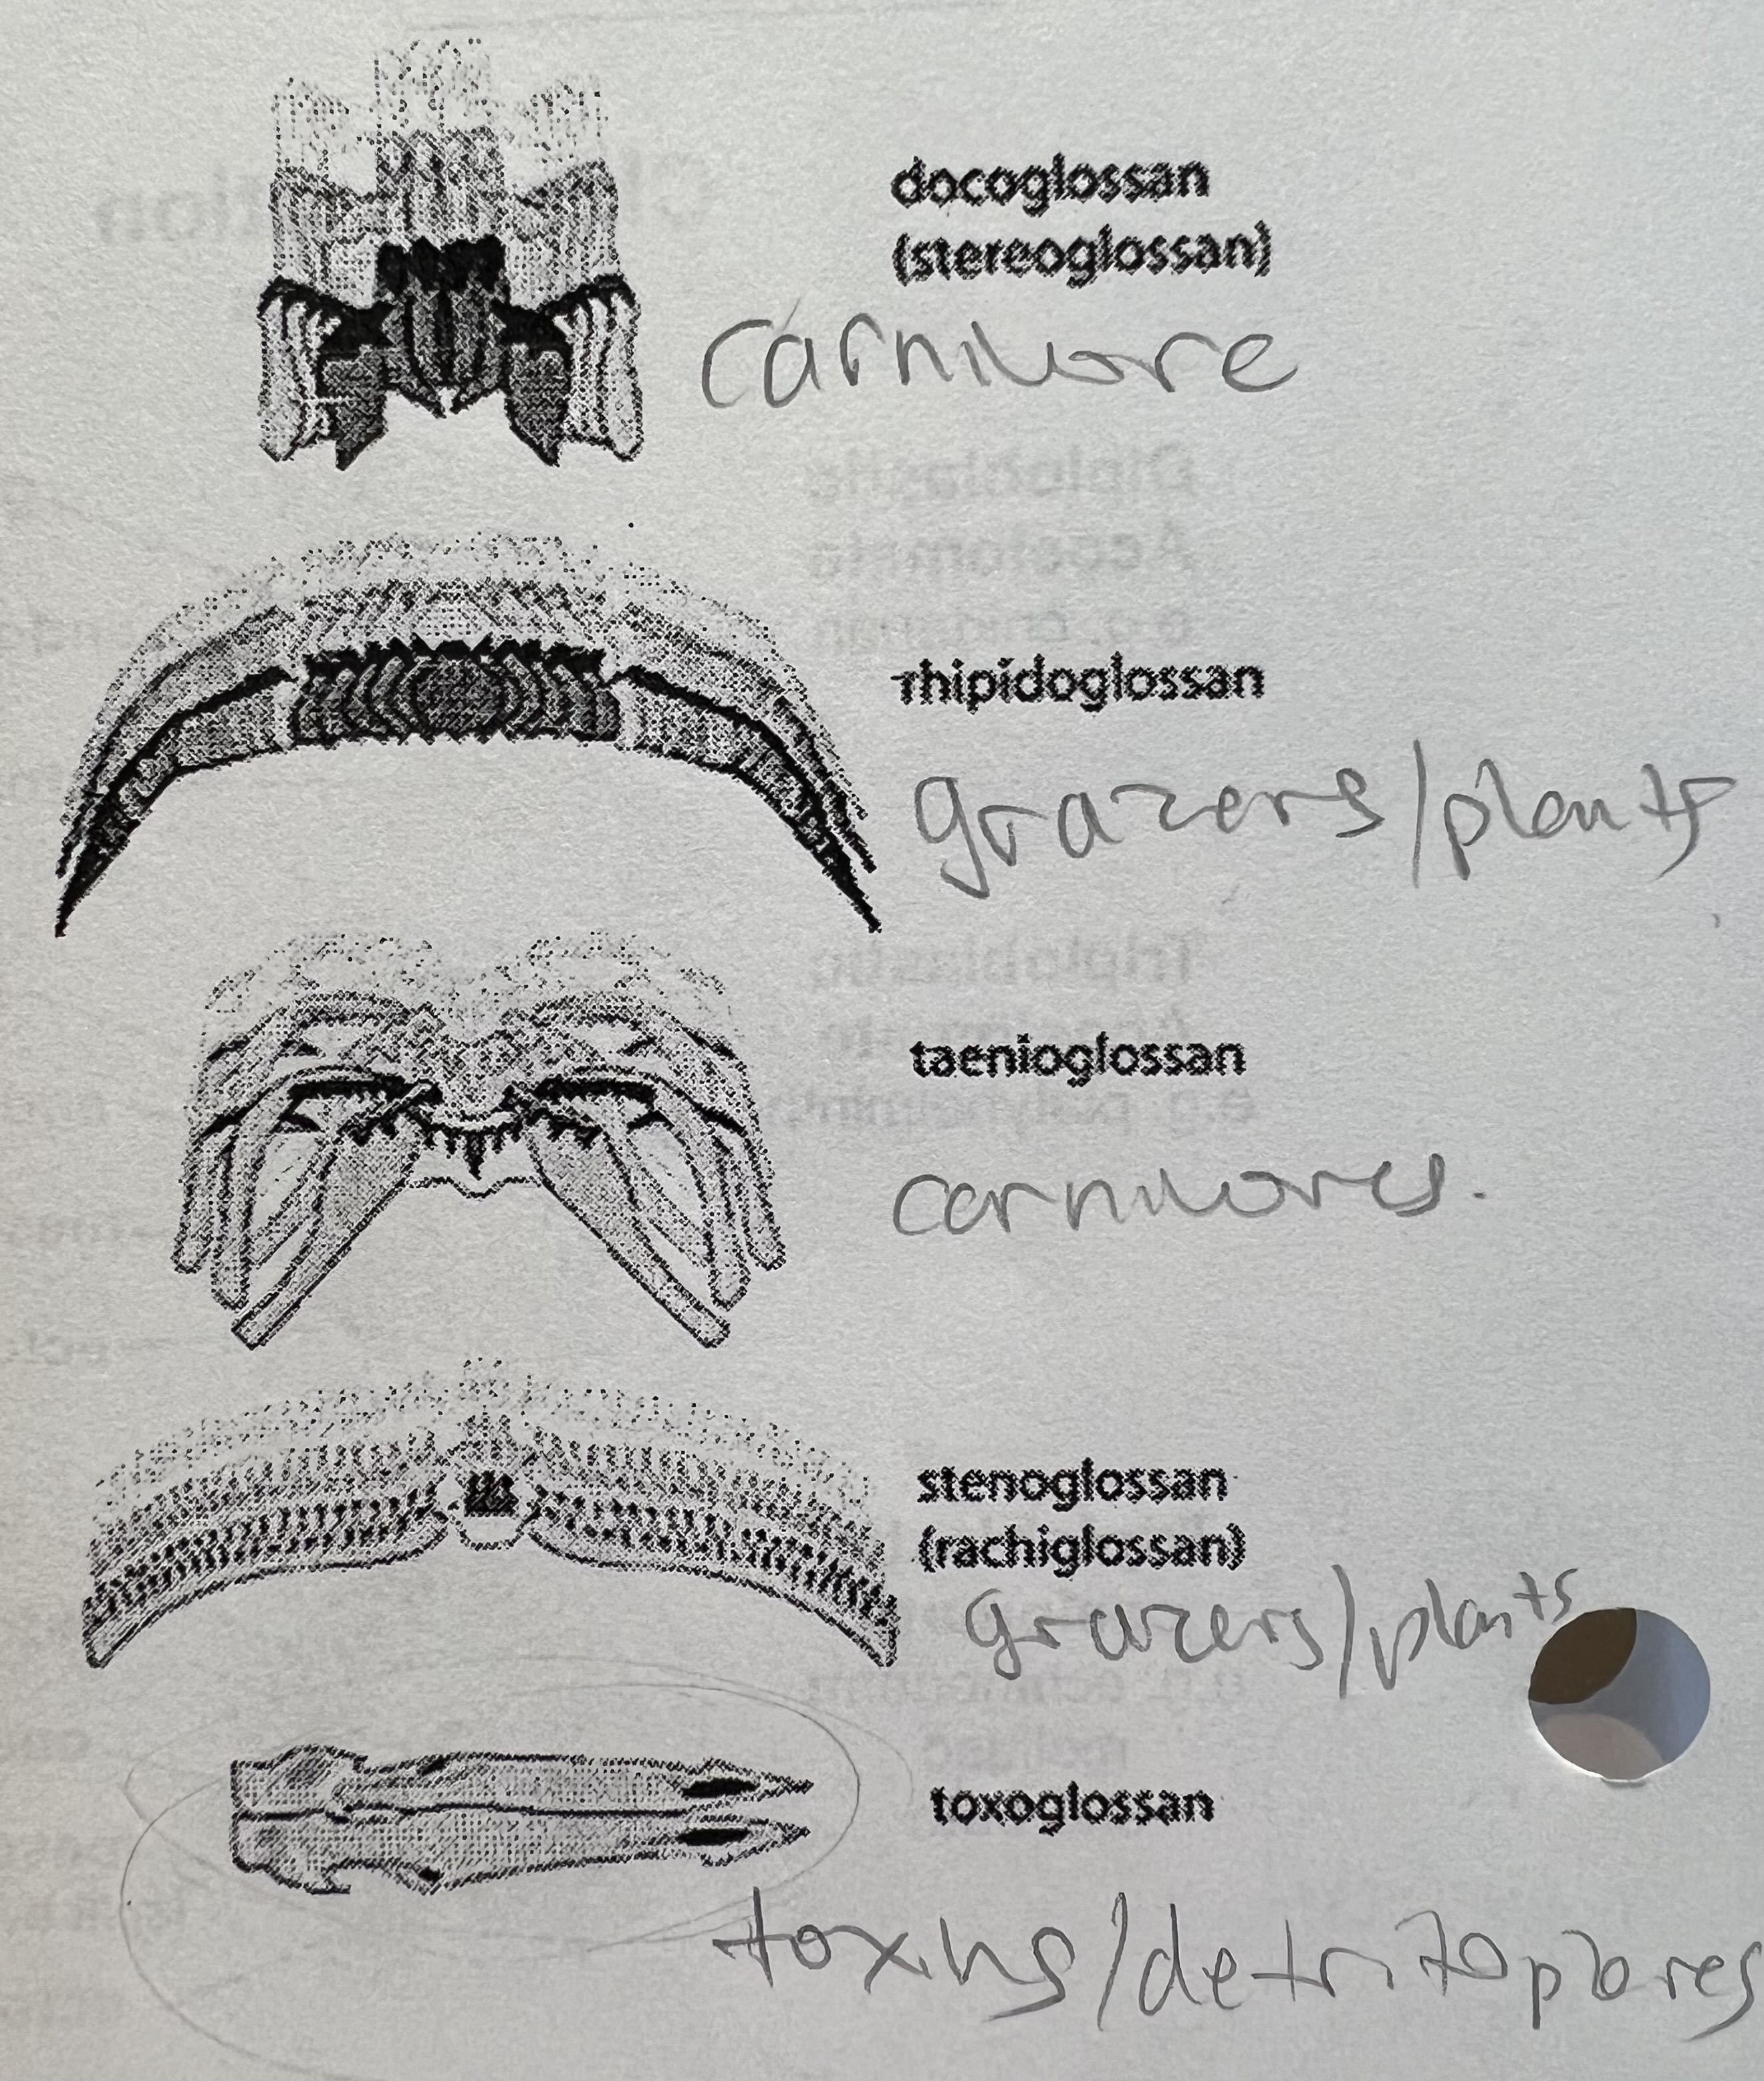 docoglossan
(stereoglossan)
carnivore
rhipidoglossan
grazers/plants
taenioglossan
carnivores.
stenoglossan
(rachiglossan)
grazers/plants
toxoglossan
toxins/detritophores